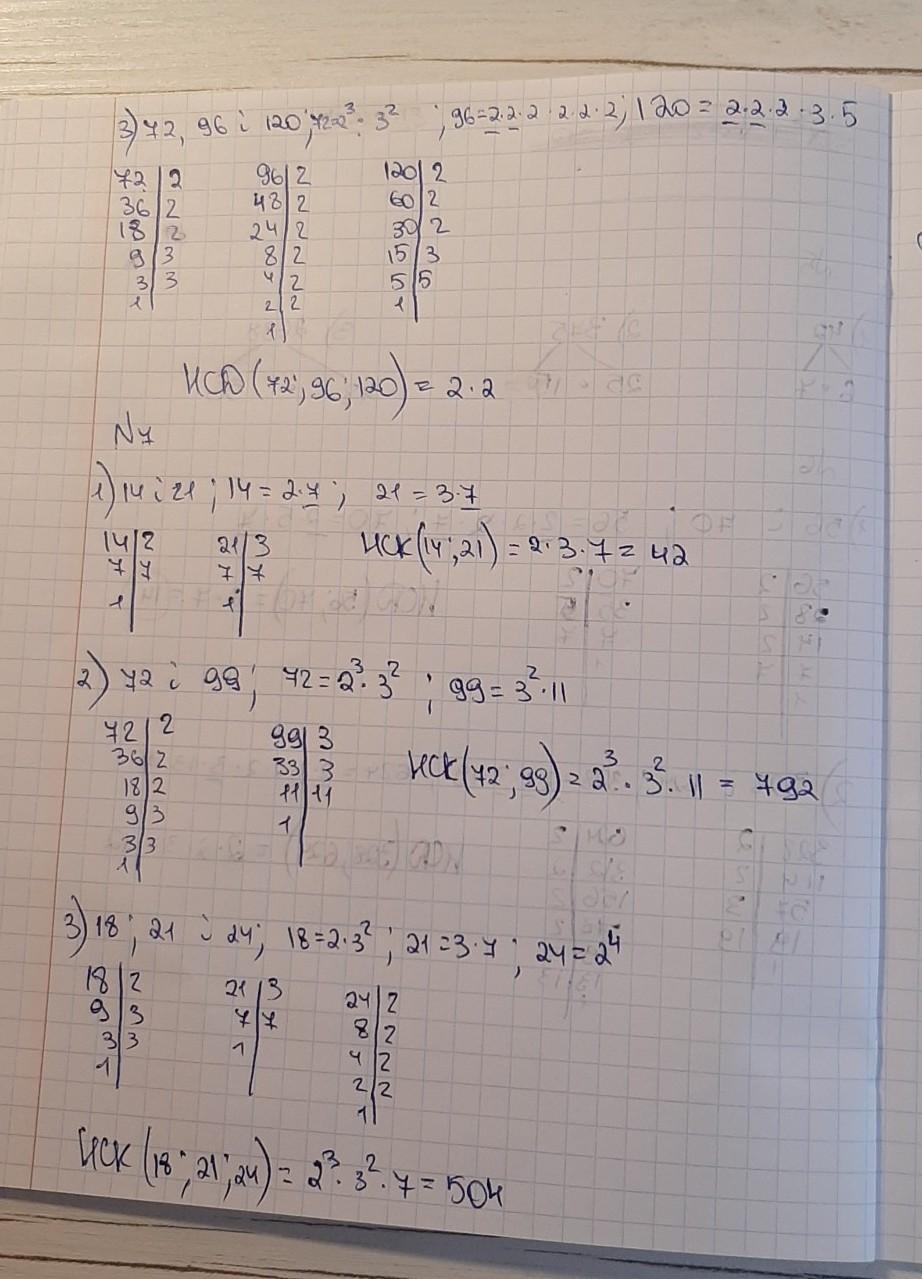 3) 72, 96 і 120; 72=2³·3² ; 96=2·2·2·2·2·2; 120=2·2·2·3·5
72|2 96|2 120|2
36|2 48|2 60|2
18|2 24|2 30|2
9|3 8|2 15|3
3|3 4|2 5|5
1| 2|2 1|
1|
НСД(72;96;120)=2·2
N7
1) 14 і 21; 14=2·7; 21=3·7
14|2 21|3 НСК(14;21)=2·3·7=42
7|7 7|7
1| 1|
2) 72 і 99; 72=2³·3² ; 99=3²·11
72|2 99|3
36|2 33|3 НСК(72;99)=2³·3²·11=792
18|2 11|11
9|3 1|
3|3
1|
3) 18; 21 і 24; 18=2·3²; 21=3·7; 24=2⁴
18|2 21|3 24|2
9|3 7|7 8|2
3|3 1| 4|2
1| 2|2
1|
НСК(18;21;24)=2³·3²·7=504